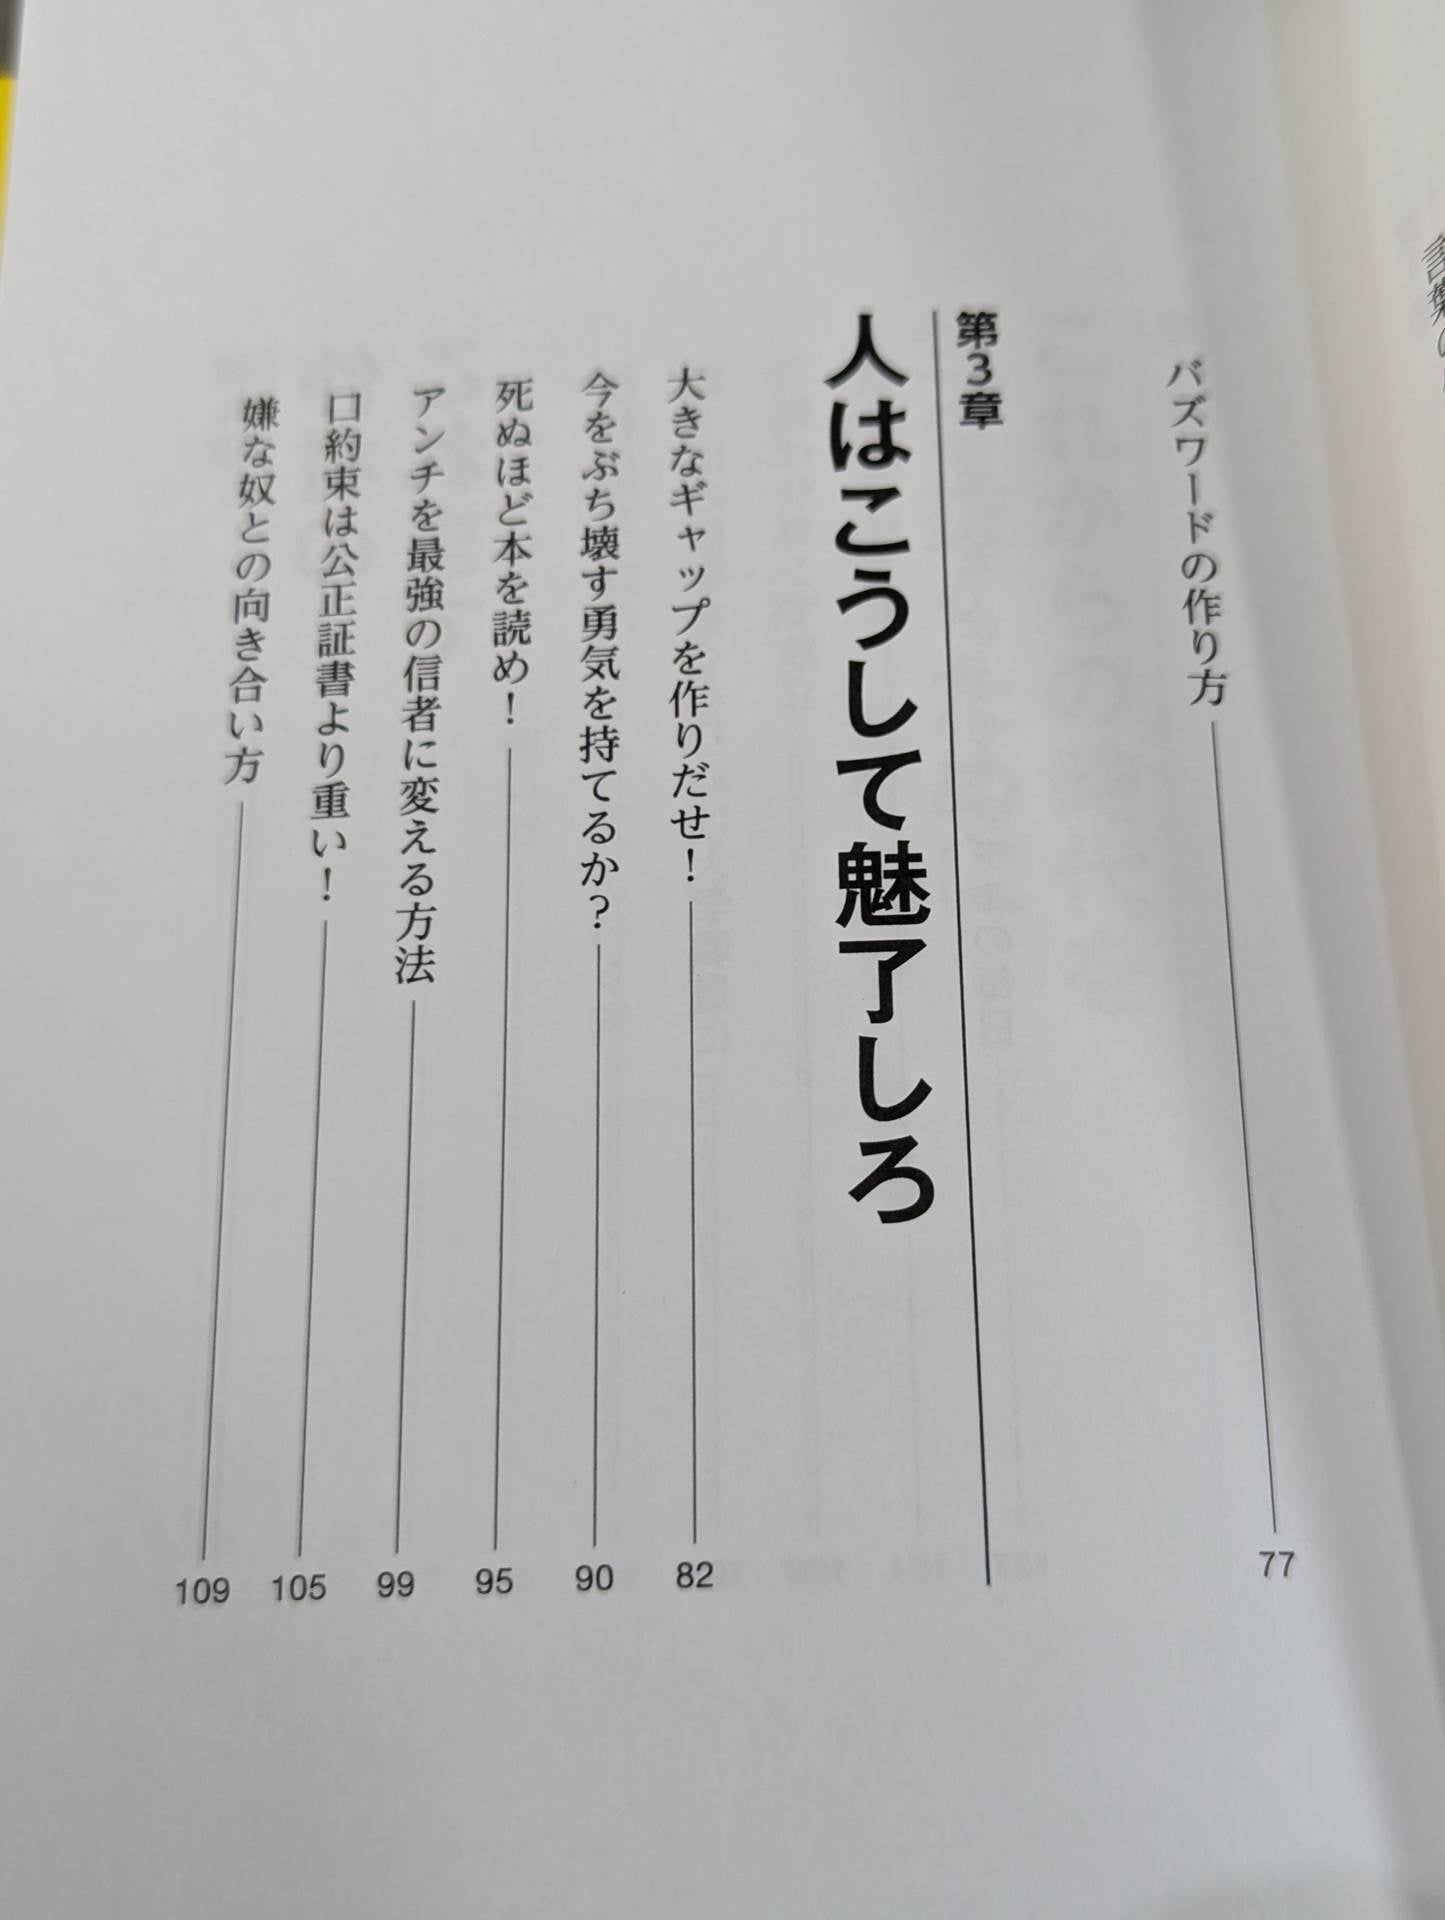 バズワードの作り方 77
第3章
人はこうして魅了しろ
大きなギャップを作りだせ！ 82
今をぶち壊す勇気を持てるか？ 90
死ぬほど本を読め！ 95
アンチを最強の信者に変える方法 99
口約束は公正証書より重い！ 105
嫌な奴との向き合い方 109